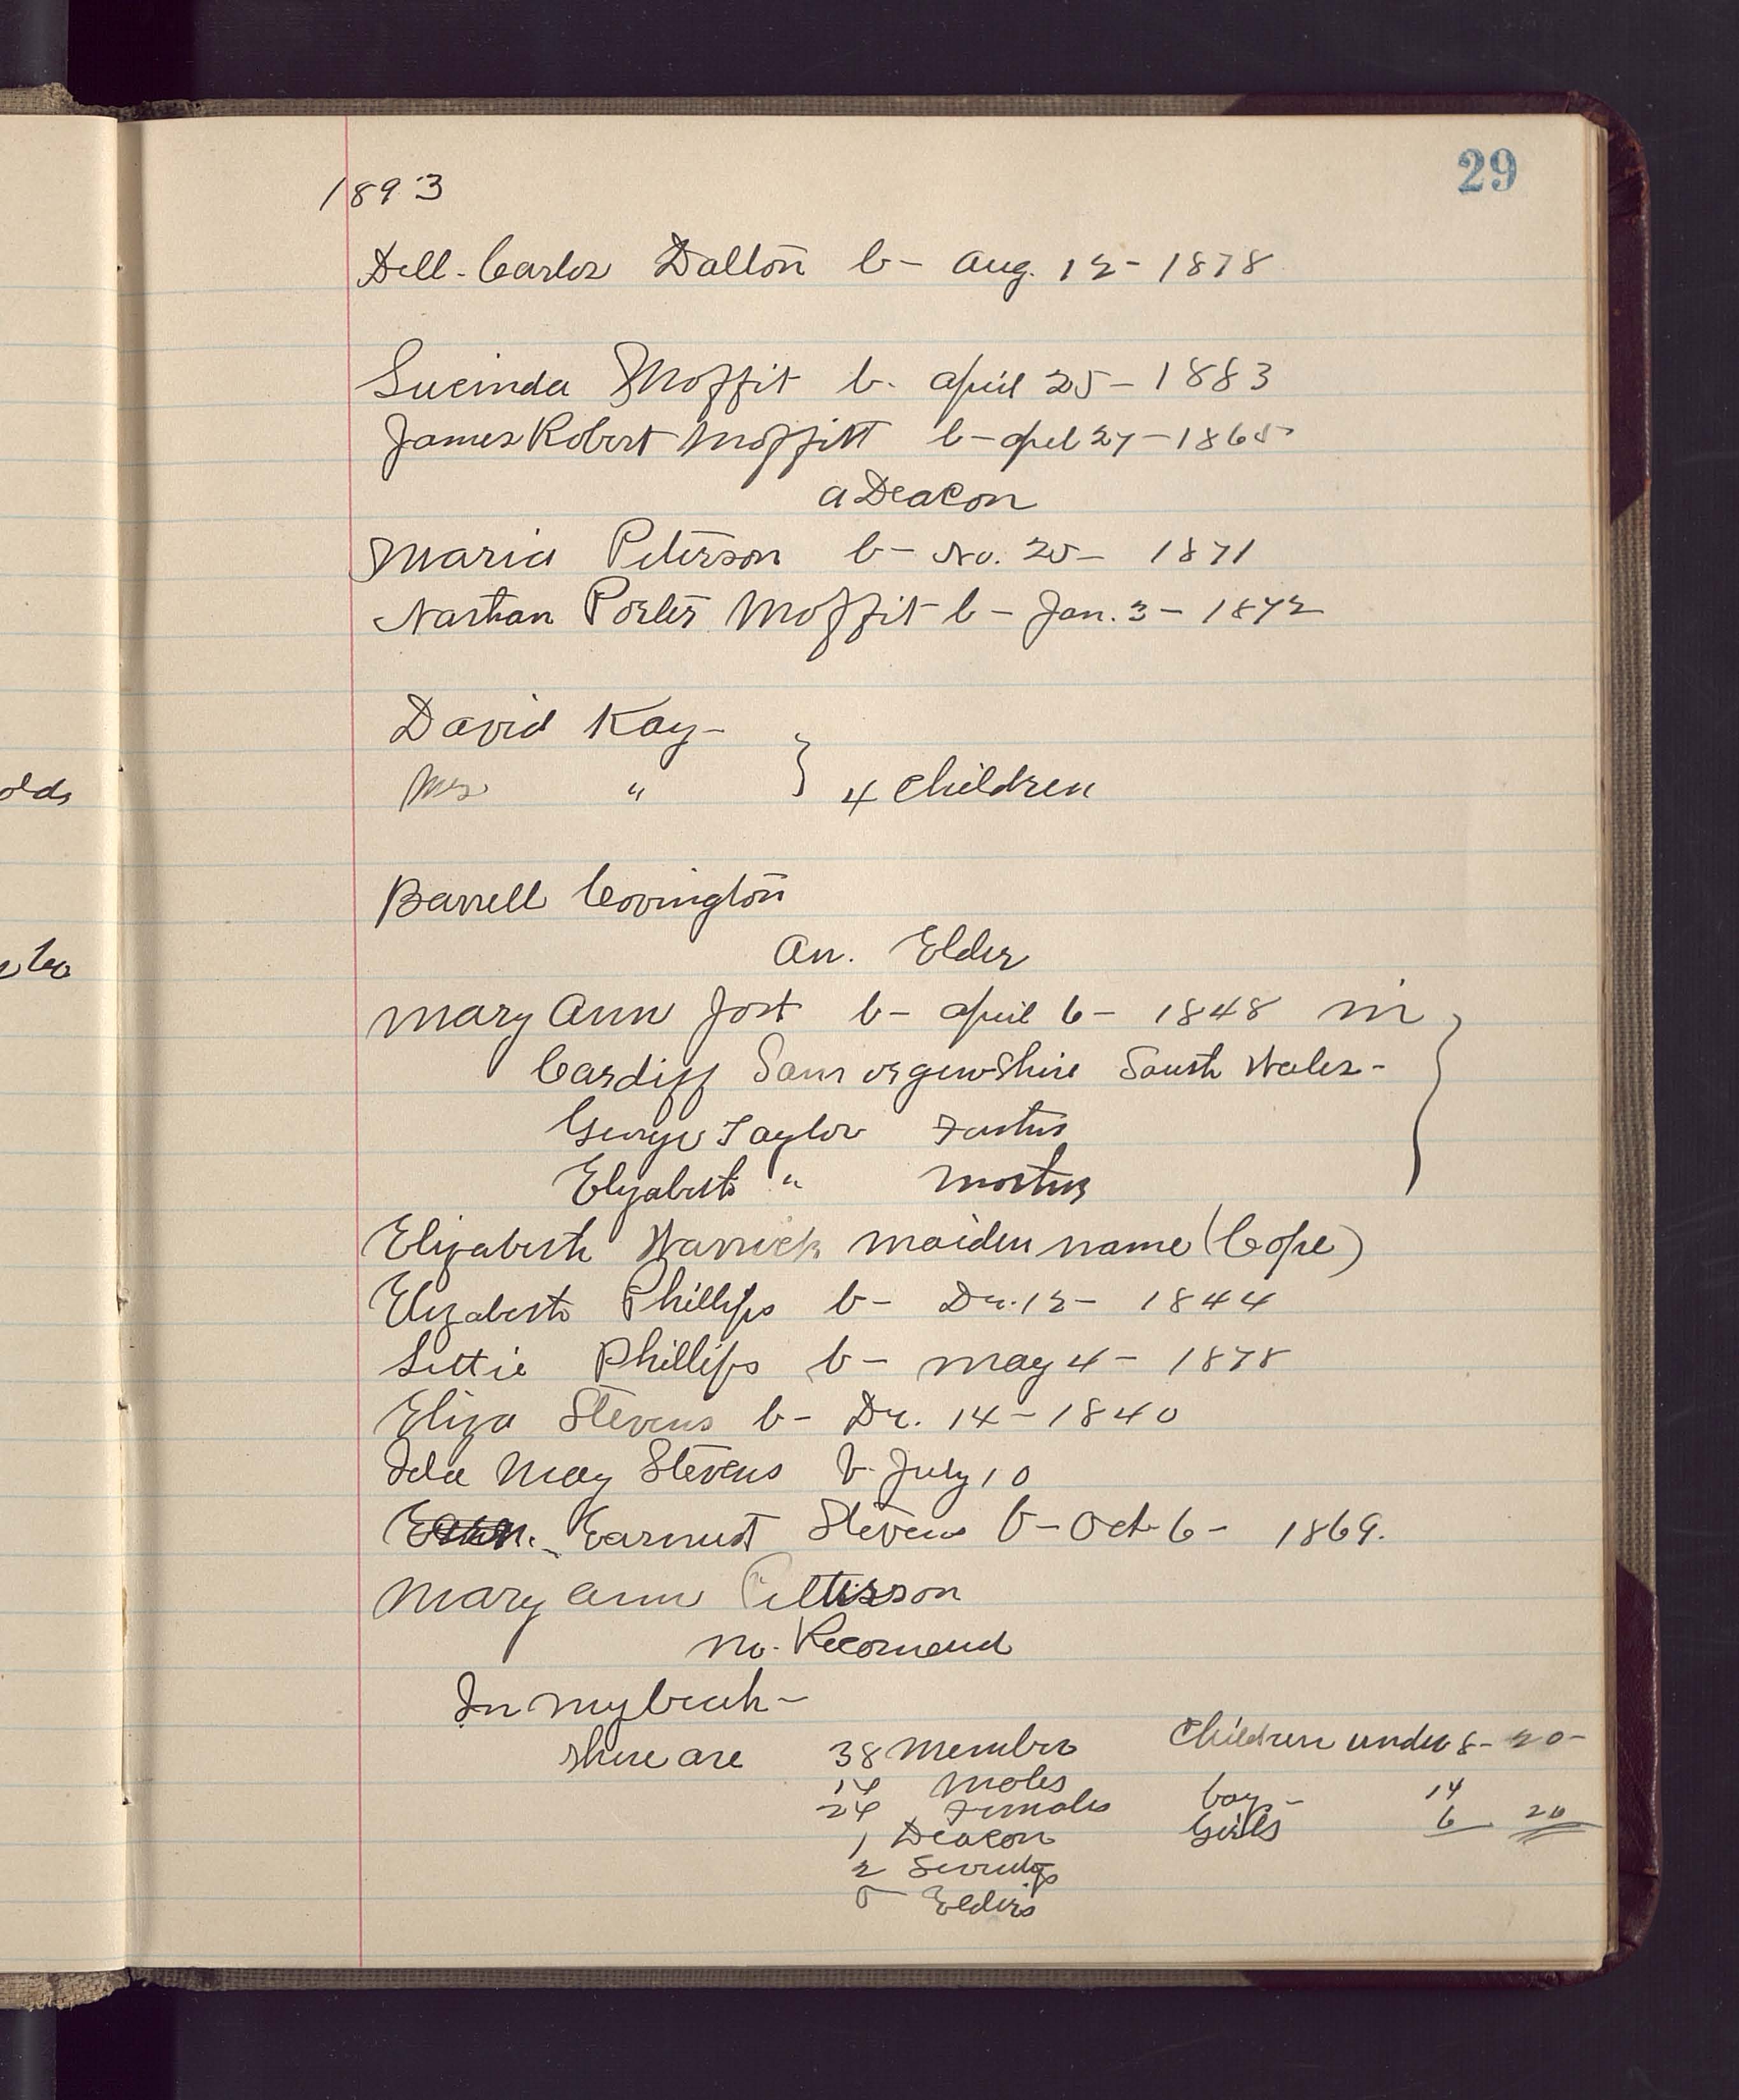 29
1893
Dell-Carlos Dalton b- Aug. 12- 1878
Lucinda Moffit b- april 25- 1883
James Robert Moffitt b- apel 27-1865
a Deacon
Maria Peterson b- No. 25- 1871
Nathan Porter Moffit b- Jan. 3- 1872
David Kay-
Mrs " } 4 children
olds
Barrell Covington
An. Elder
Mary Ann Jost b- april 6- 1848 in
Cardiff South Wales-
George Taylor Fathis
Elizabeth " Mothis
Elizabeth Warrick maiden name (Cope)
Elizabeth Phillips b- De. 12- 1844
Lettie Phillips b- may 4- 1878
Eliza Stevens b- De. 14- 1840
Ida May Stevens b- July 10
Earnest Stevens b- Oct- 6- 1869.
Mary Ann
no. Recomend
In my
there are 38 Membrs Children under 8- 20-
14 Males boys- 14
24 Females Girls 6 20
1 Deacon
2
5 Elders